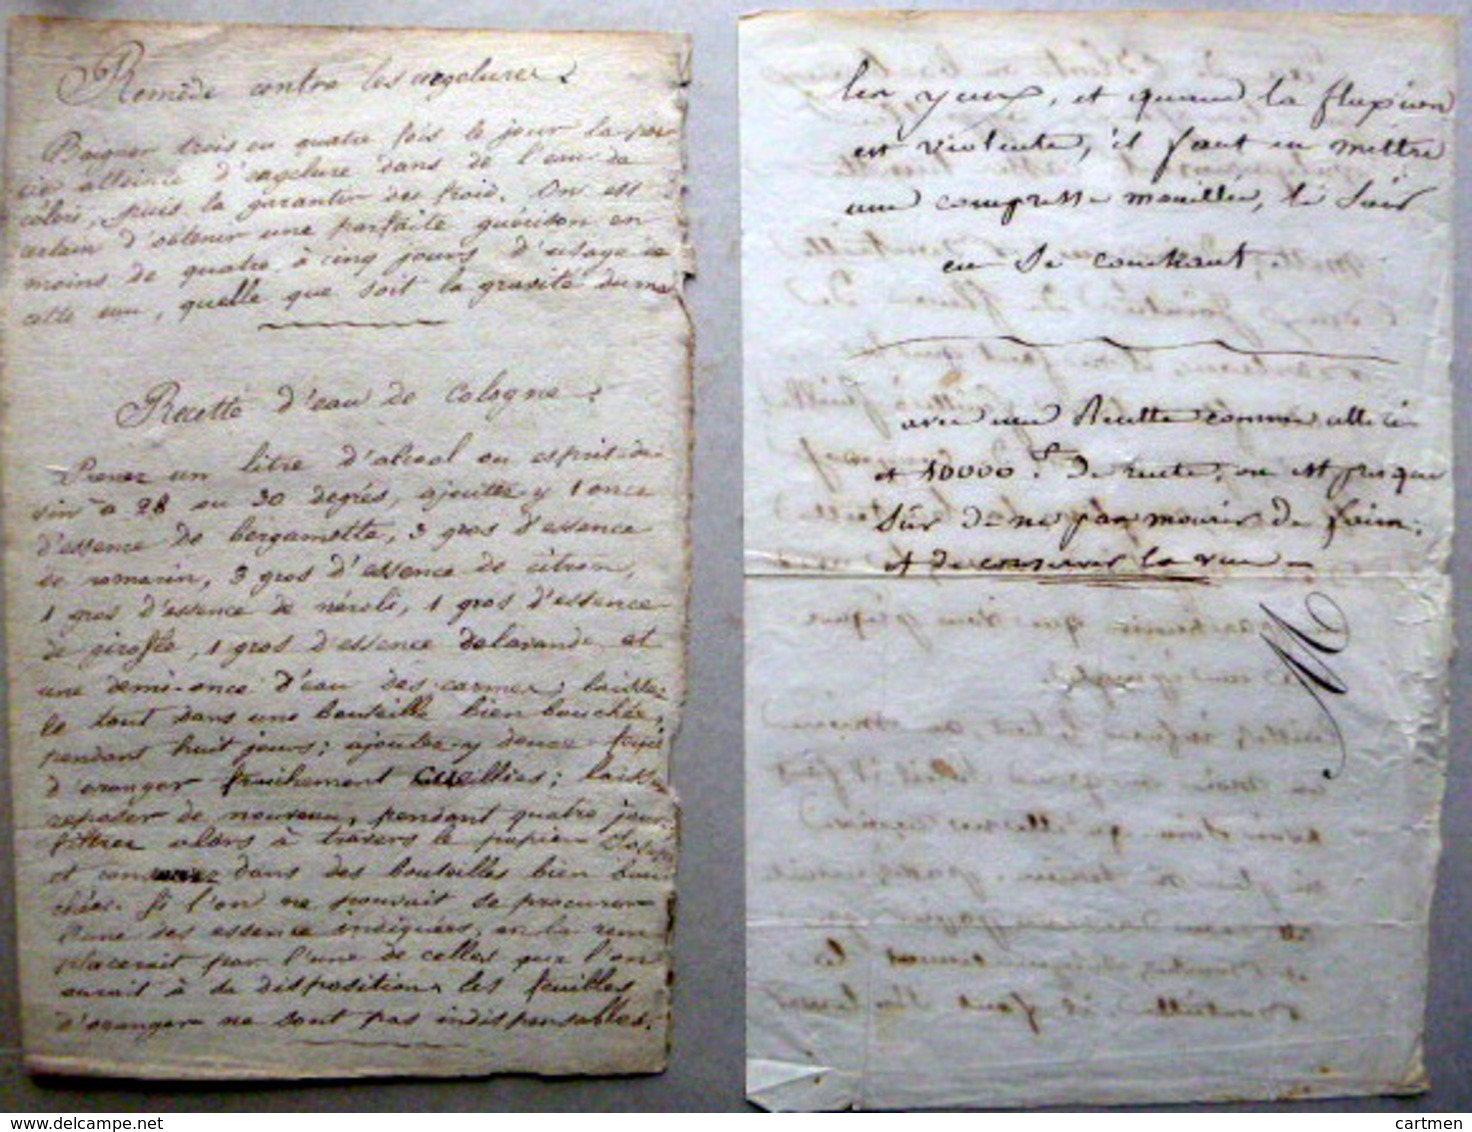 Remède contre les engelures
Baigner trois ou quatre fois le jour la par-
tie atteinte d'engelure dans de l'eau de
céleri, puis la garantir des froid. On est
certain d'obtenir une parfaite guérison en
moins de quatre à cinq jours d'usage de
cette eau, quelle que soit la gravité du ma
Recette d'eau de Cologne.
Prenez un litre d'alcool ou esprit de
vin à 28 ou 30 degrés, ajoutez-y 1 once
d'essence de bergamotte, 3 gros d'essence
de romarin, 3 gros d'essence de citron,
1 gros d'essence de néroli, 1 gros d'essence
de girofle, 1 gros d'essence de lavande et
une demi-once d'eau des carmes; laissez
le tout dans une bouteille bien bouchée,
pendant huit jours; ajoutez-y douze
d'oranger fraichement cueillies; laissez
reposer de nouveau, pendant quatre jours
filtrez alors à travers le papier
et conservez dans des bouteilles bien bou-
chées. Si l'on ne pouvait se procurer
l'une des essence indiquées, on la rem
placerait par l'une de celles que l'on
aurait à sa disposition, les feuilles
d'oranger ne sont pas indispensables.
les yeux, et quand la fluxion
est violente, il faut en mettre
une compresse mouillée, le soir
en se couchant.
avec une Recette comme celle ci
et 10000 f. de rente, on est presque
sûr de ne pas mourir de faim,
et de conserver la vue
M
cartmen